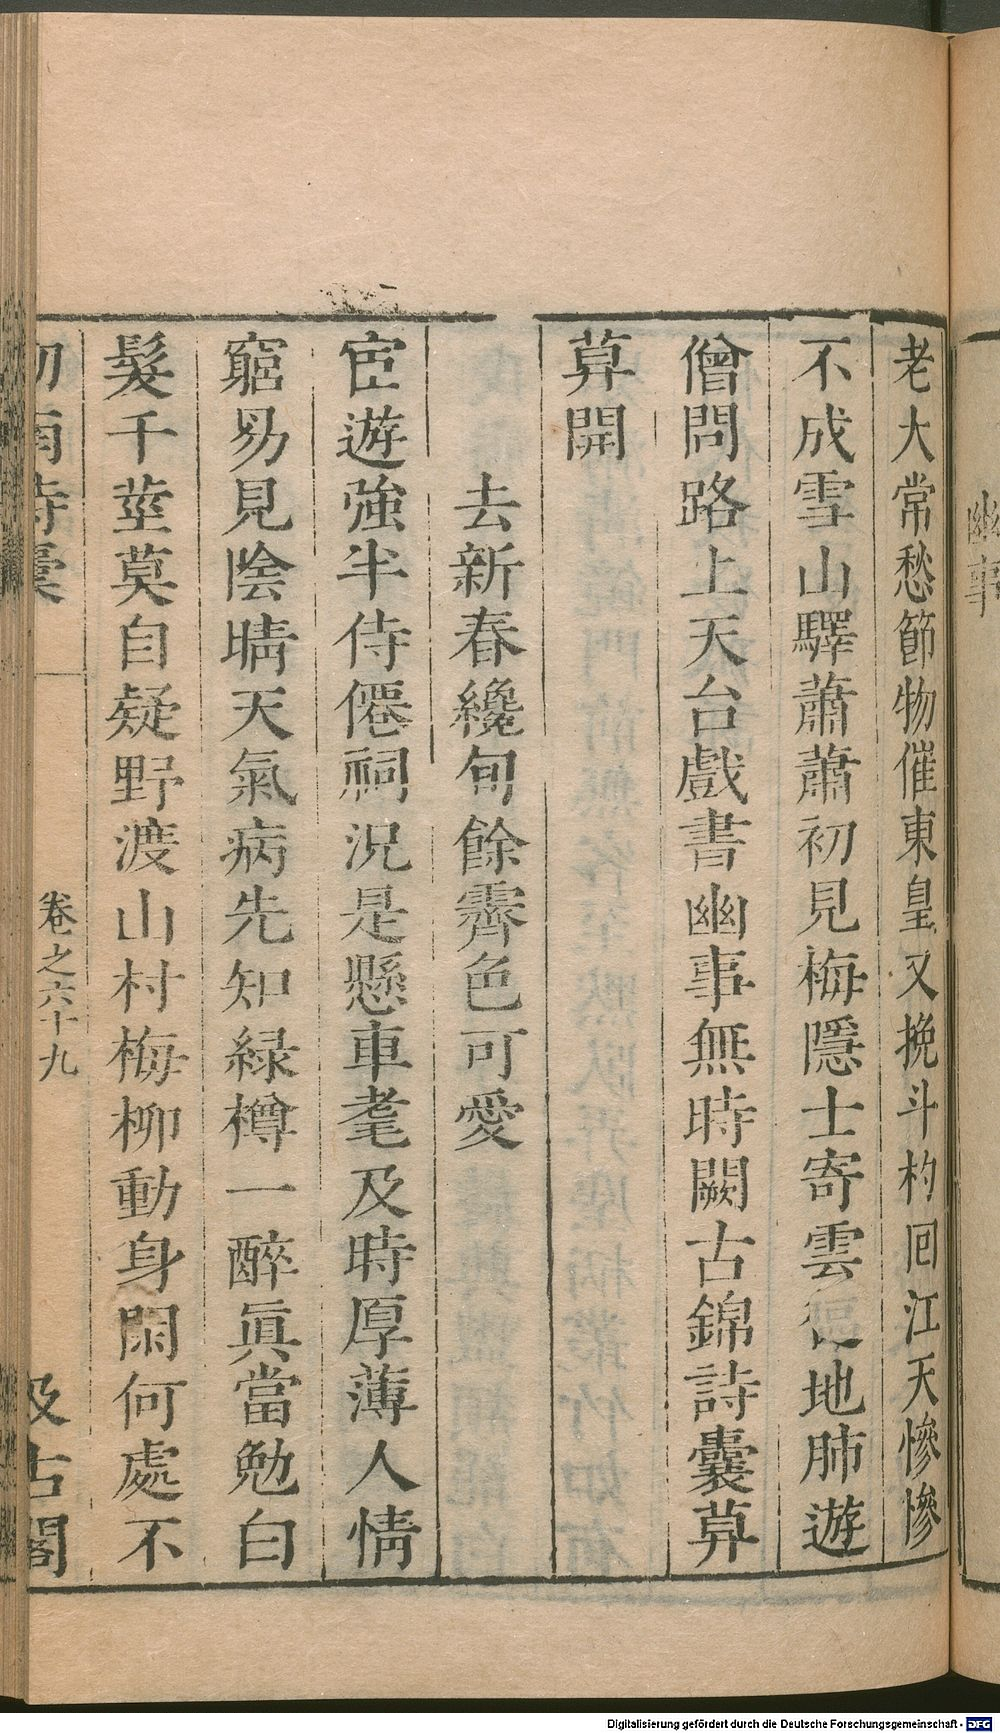 幽事
老大常愁節物催東皇又挽斗杓囘江天慘慘
不成雪山驛蕭蕭初見梅隱士寄雲地肺遊
僧問路上天台戲書幽事無時闕古錦詩囊草
草開
去新春纔旬餘霽色可愛
宦遊強半侍僊祠況是懸車耄及時厚薄人情
窮易見陰晴天氣病先知緑樽一醉眞當勉白
髮千莖莫自疑野渡山村梅柳動身閑何處不
劒南詩槀
卷之六十九
汲古閣
Digitalisierung gefördert durch die Deutsche Forschungsgemeinschaft - DFG